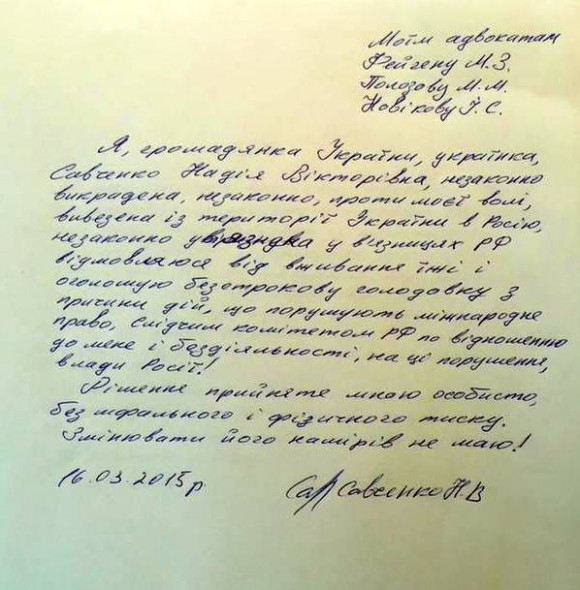 Моїм адвокатам
Фейгену М.З.
Полозову М.М.
Новікову І.С.
Я, громадянка України, українка,
Савченко Надія Вікторівна, незаконно
викрадена, незаконно, проти моєї волі,
вивезена із території України в Росію,
незаконно ув'язнена у в'язницях РФ
відмовляюся від вживання їжі і
оголошую безстрокову голодовку з
причини дій, що порушують міжнародне
право, Слідчим комітетом РФ по відношенню
до мене і бездіяльності, на ці порушення,
влади Росії!
Рішення прийняте мною особисто,
без морального і фізичного тиску.
Змінювати його намірів не маю!
16.03.2015 р. Савченко Н.В